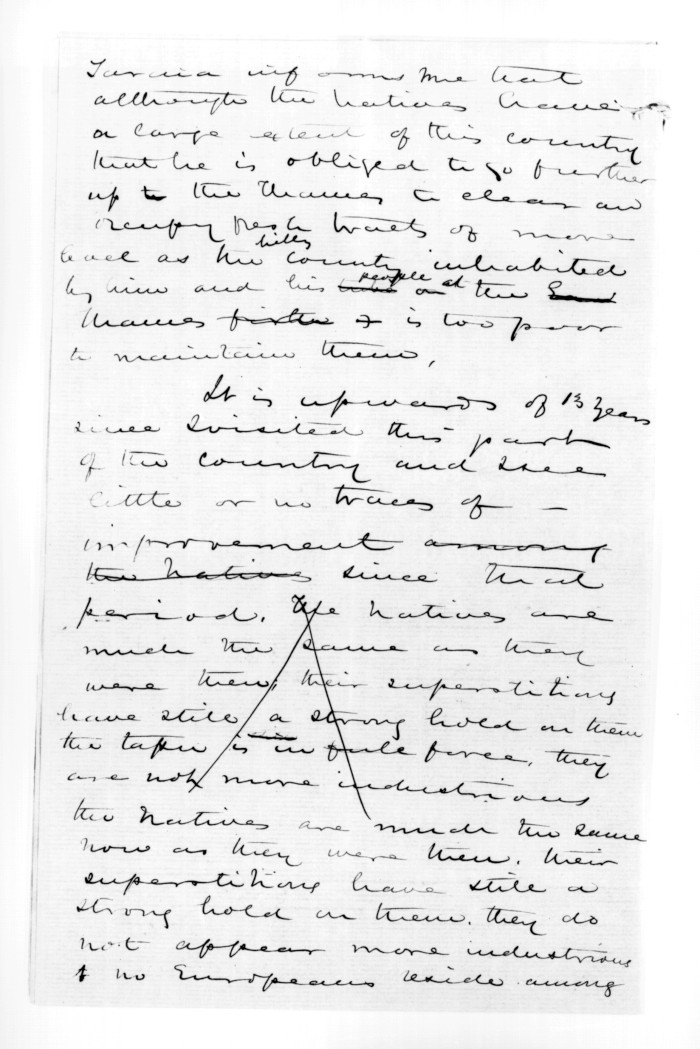 Taraia informs me that
although the Natives have
a large extent of this country
that he is obliged to go further
up to the Thames to clear and
occupy fresh tracts of more
level as the hilly country inhabited
by him and his tribe people on at the
Thames firths & is too poor
to maintain them,
It is upwards of 13 years
since I visited this part
of the country and I see
little or no traces of —
improvement among
the Natives since that
period. The Natives are
much the same as they
were then, their superstitions
have still a strong hold on them
the tapu is in full force, they
are not more industrious
the Natives are much the same
now as they were then. their
superstitions have still a
strong hold on them. they do
not appear more industrious
& no Europeans reside among